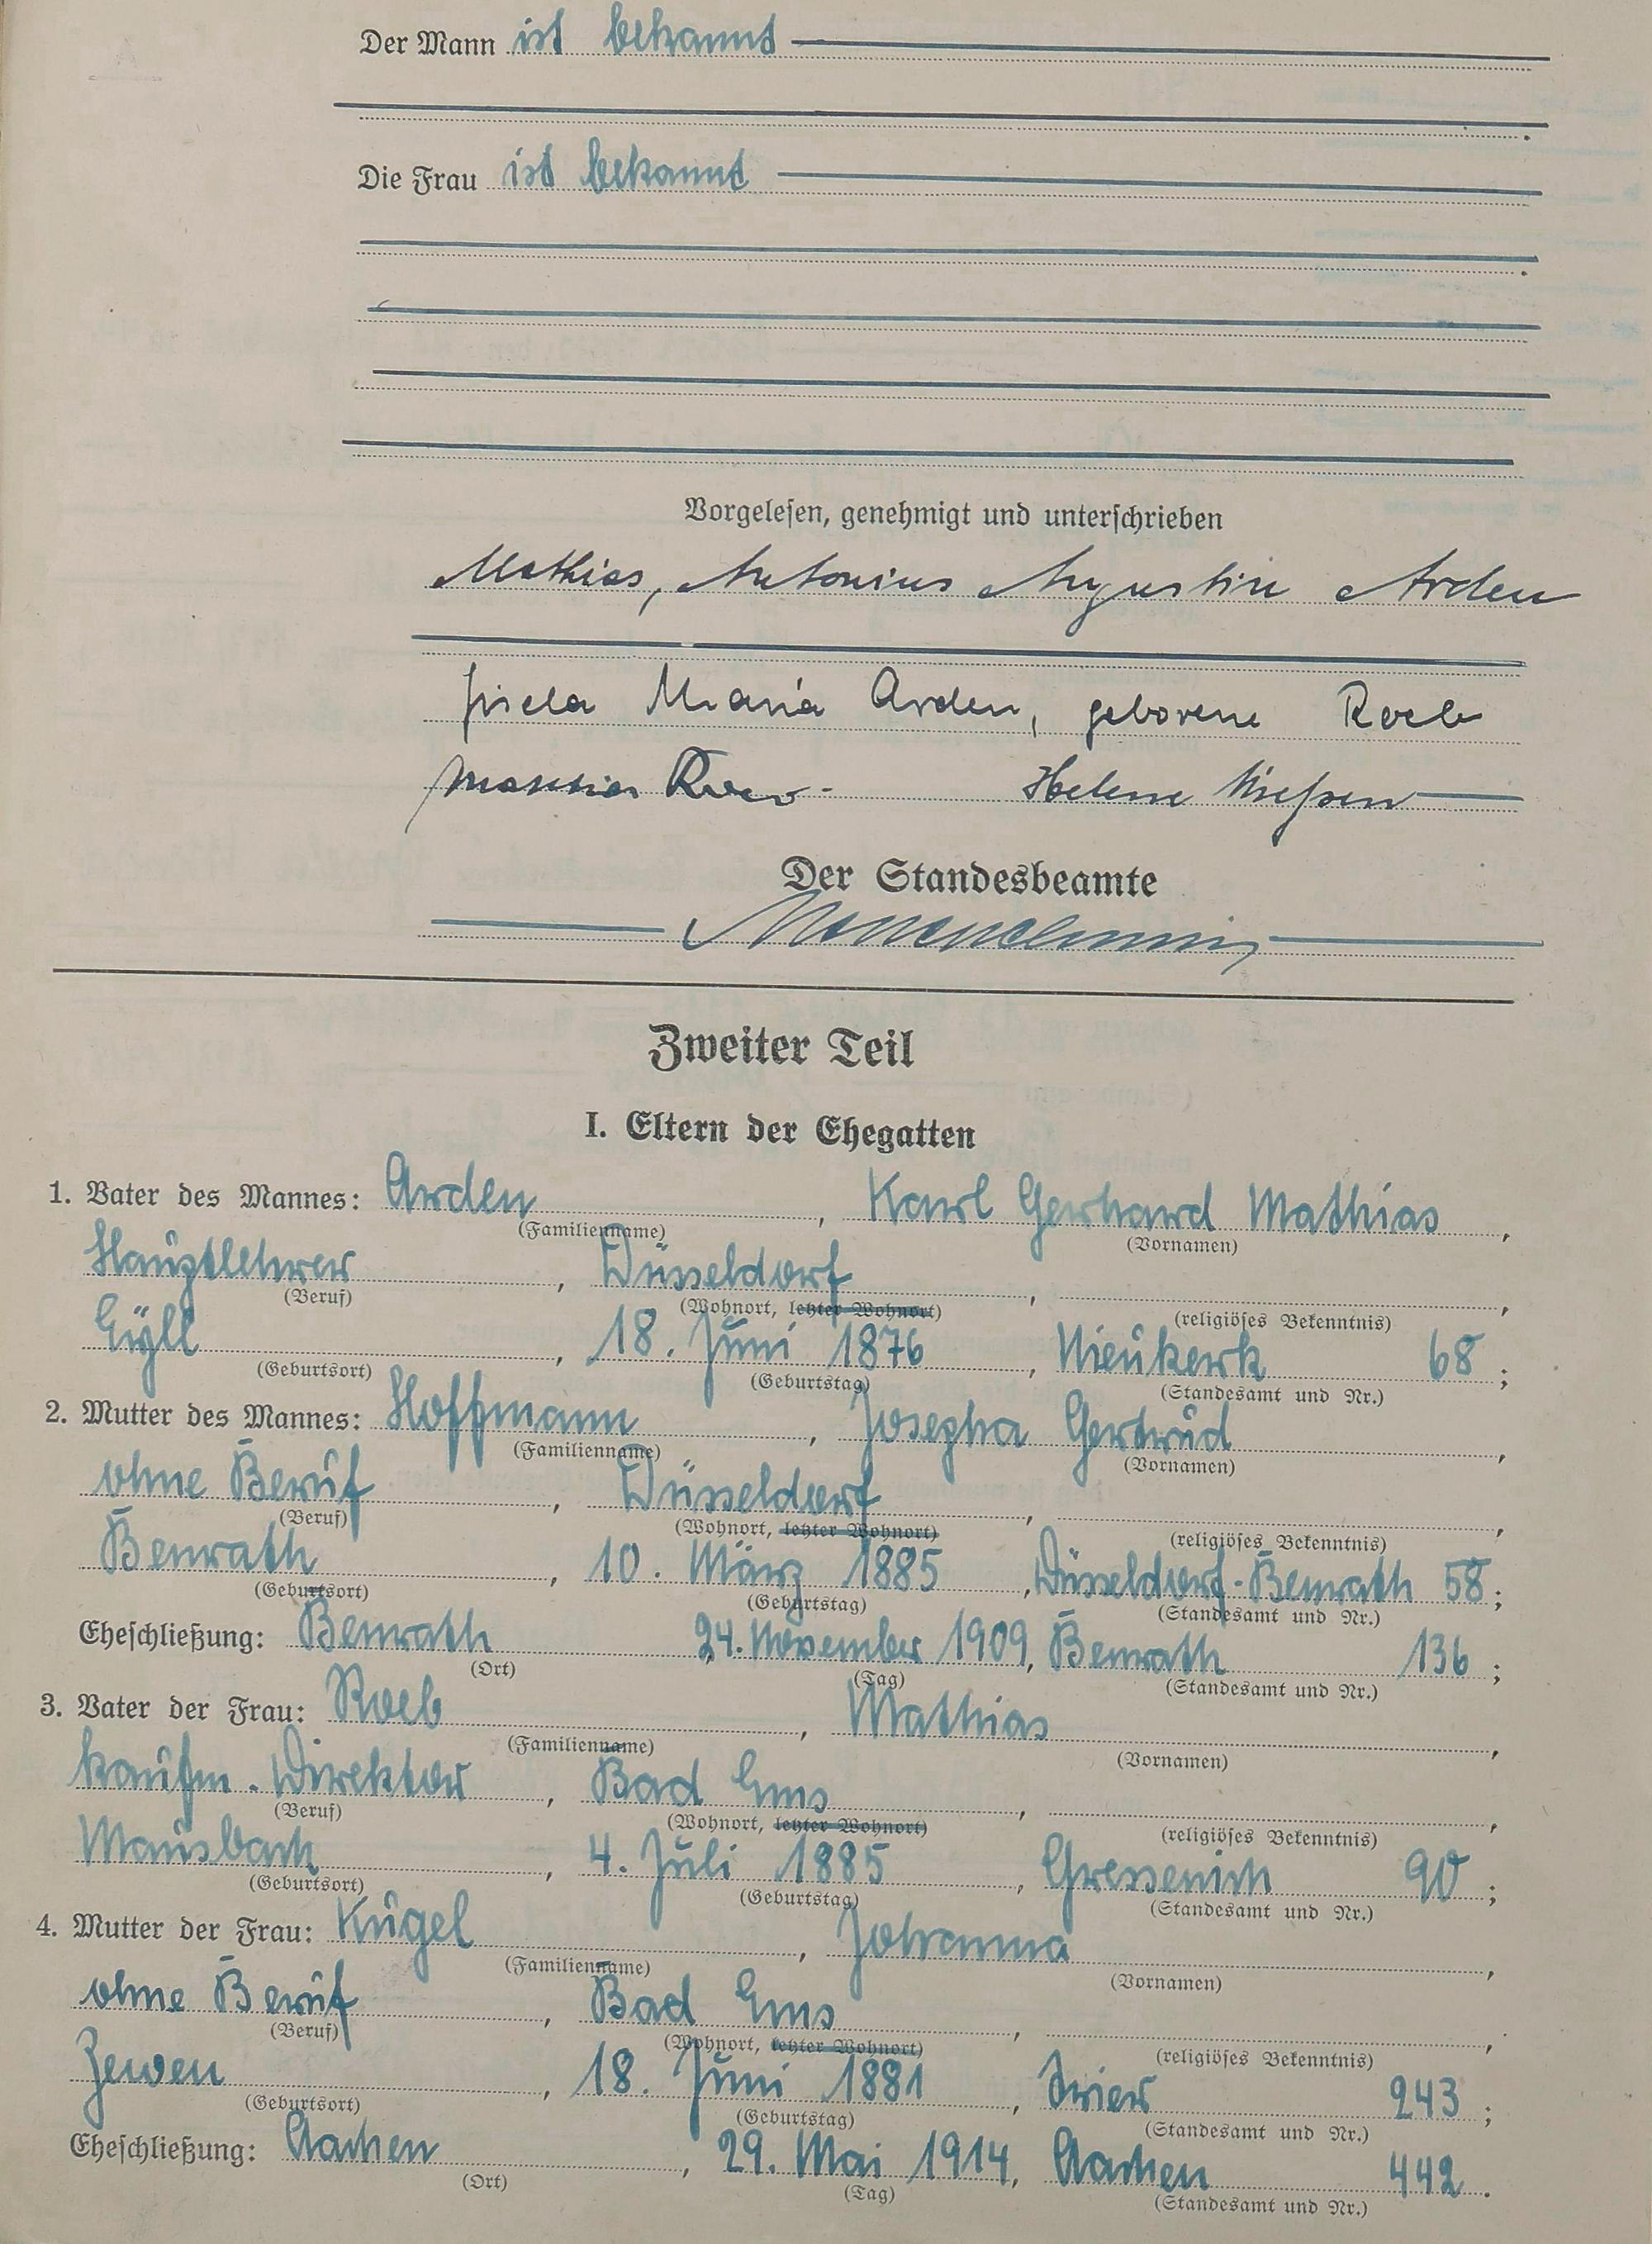 Der Mann ist bekannt
Die Frau ist bekannt
Vorgelesen, genehmigt und unterschrieben
Mathias, Antonius Augustin Arden
Gisela Maria Arden, geborene Roeb
Mathias Roeb Helene
Der Standesbeamte
Zweiter Teil
I. Eltern der Ehegatten
1. Vater des Mannes: Arden, Karl Gerhard Mathias,
(Familienname) (Vornamen)
Hauptlehrer, Düsseldorf, ,
(Beruf) (Wohnort, letzter Wohnort) (religiöses Bekenntnis)
Eyll, 18. Juni 1876, Nieukerk 68;
(Geburtsort) (Geburtstag) (Standesamt und Nr.)
2. Mutter des Mannes: Hoffmann, Josepha Gertrud,
(Familienname) (Vornamen)
ohne Beruf, Düsseldorf, ,
(Beruf) (Wohnort, letzter Wohnort) (religiöses Bekenntnis)
Benrath, 10. März 1885, Düsseldorf-Benrath 58;
(Geburtsort) (Geburtstag) (Standesamt und Nr.)
Eheschließung: Benrath, 24. November 1909, Benrath 136;
(Ort) (Tag) (Standesamt und Nr.)
3. Vater der Frau: Roeb, Mathias,
(Familienname) (Vornamen)
kaufm. Direktor, Bad Ems, ,
(Beruf) (Wohnort, letzter Wohnort) (religiöses Bekenntnis)
Mausbach, 4. Juli 1885, Gressenich 90;
(Geburtsort) (Geburtstag) (Standesamt und Nr.)
4. Mutter der Frau: Kugel, Johanna,
(Familienname) (Vornamen)
ohne Beruf, Bad Ems, ,
(Beruf) (Wohnort, letzter Wohnort) (religiöses Bekenntnis)
Zewen, 18. Juni 1881, Trier 243;
(Geburtsort) (Geburtstag) (Standesamt und Nr.)
Eheschließung: Aachen, 29. Mai 1914, Aachen 442.
(Ort) (Tag) (Standesamt und Nr.)